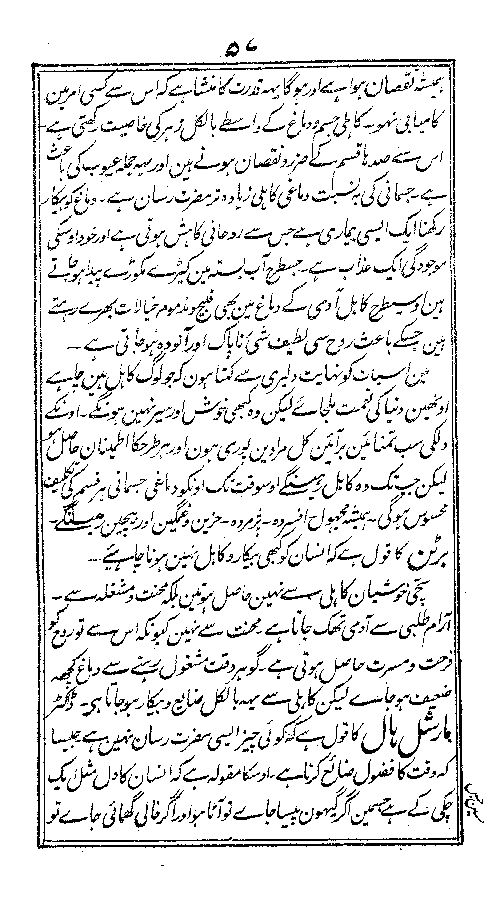 ۵۶
ہمیشہ نقصان ہوا ہے اور ہوگا یہہ قدرت کا منشا ہے کہ اس سے کسی امر مین
کامیابی نہو۔ کاہلی جسم و دماغ کے واسطے بالکل زہر کی خاصیت رکھتی ہے
اس سے صدہا قسم کے ضرر و نقصان ہوتے ہین اور یہہ جملہ عیوب کی باعث
ہے۔ جسمانی کی بہ نسبت دماغی کاہلی زیادہ تر مضرت رسان ہے۔ دماغ کو بیکار
رکھنا ایک ایسی بیماری ہے جس سے روحانی کاہش ہوتی ہے اور خود اوسکی
موجودگی ایک عذاب ہے۔ جسطرح آب بستہ مین کیڑے مکوڑے پیدا ہو جاتے
ہین اوسیطرح کاہل آدمی کے دماغ مین بھی قبیح و مذموم خیالات بھرے رہتے
ہین جسکے باعث روح سی لطیف شئ ناپاک اور آلودہ ہو جاتی ہے۔
مین اسبات کو نہایت دلیری سے کہتا ہون کہ جو لوگ کاہل ہین چاہے
اونھین دنیا کی نعمت ملجائے لیکن وہ کبھی خوش اور سیر نہین ہونگے۔ اونکے
دلکی سب تمنائین برآئین کل مرادین پوری ہون اور ہر طرحکا اطمینان حاصل ہو
لیکن جب تک وہ کاہل رہینگے اوسوقت تک اونکو دماغی جسمانی ہر قسم کی تکلیف
محسوس ہوگی۔ ہمیشہ مجہول افسردہ۔ پژمردہ۔ حزین و غمگین اور بیچین رہینگے۔
برٹن کا قول ہے کہ انسان کو کبھی بیکار و کاہل نہین ہونا چاہیئے۔
سچی خوشیان کاہلی سے نہین حاصل ہوتین بلکہ محنت و مشغلہ سے۔
آرام طلبی سے آدمی تھک جاتا ہے۔ محنت سے نہین کیونکہ اس سے تو روح کو
فرحت و مسرت حاصل ہوتی ہے۔ گو ہر وقت مشغول رہنے سے دماغ کچھہ
ضعیف ہو جاے لیکن کاہلی سے یہہ بالکل ضائع و بیکار ہو جاتا ہی۔ ڈاکٹر
مارشل ہال کا قول ہے کہ کوئی چیز ایسی مضرت رسان نہین ہے جیسا
کہ وقت کا فضول ضائع کرنا ہے۔ اوسکا مقولہ ہے کہ انسان کا دل مثل ایک
چکی کے ہے جسمین اگر گیہون پیسا جاے تو آٹا ہو اور اگر خالی گھمائی جاے تو